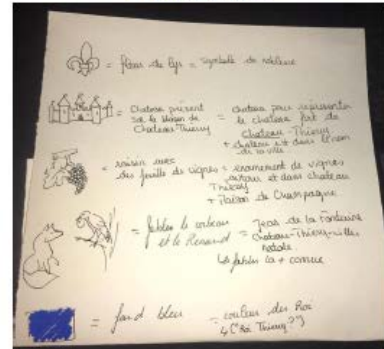 = fleur de lys = symbole de noblesse
= chateau présent sur le blason de Chateau-Thierry = chateau pour représenter le chateau fort de Chateau-Thierry
+ chateau est dans le nom de la ville
= raisin avec des feuille de vignes = énormément de vignes autour et dans chateau Thierry
+ Raison de Champagne
= fables le corbeau et le Renard = Jean de la Fontaine
Chateau-Thierry=villes natale
↳ fables la + connue
= fond bleu = couleur des Roi
↳ ("Roi Thierry?")